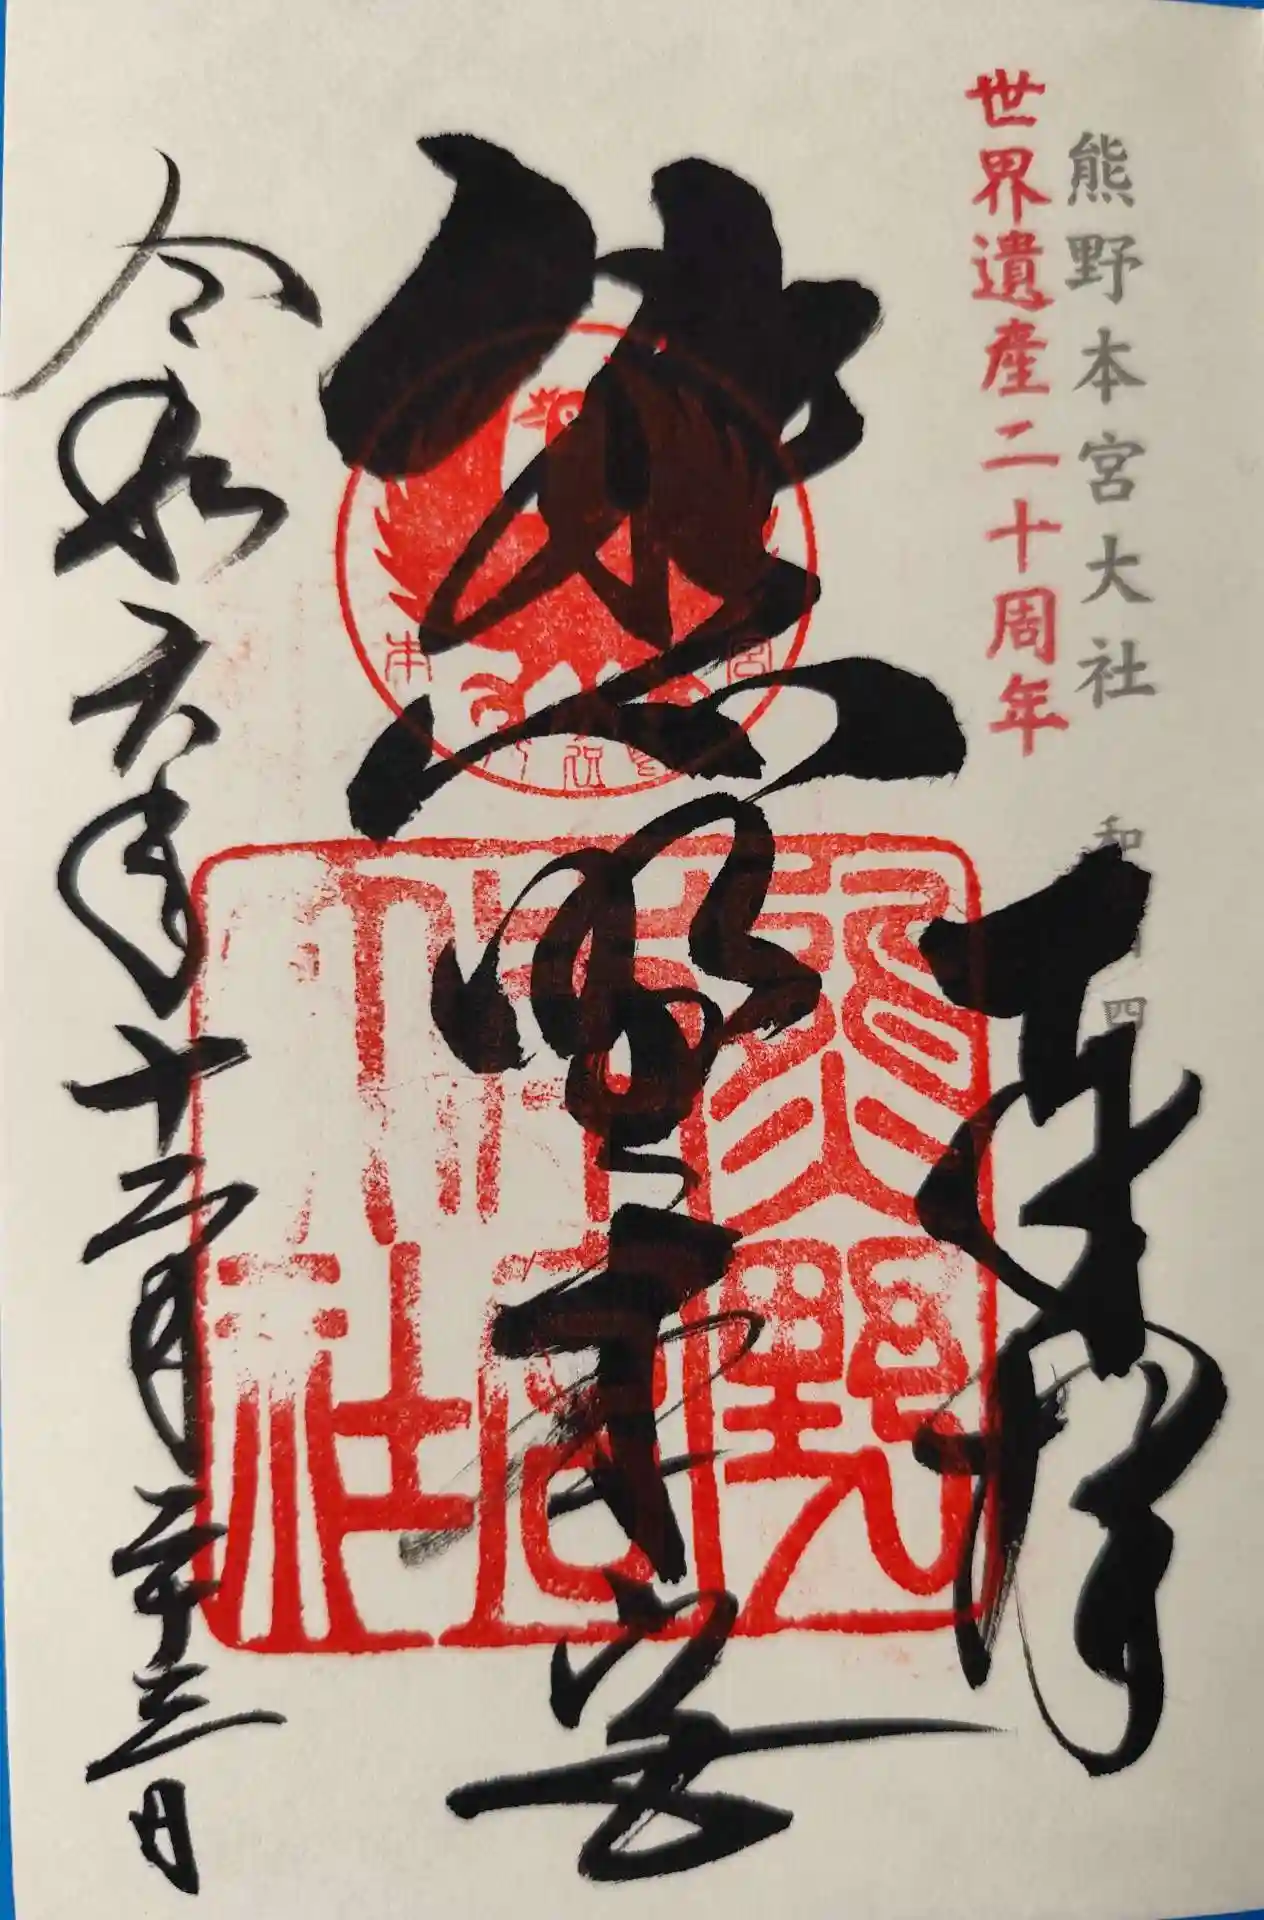 熊野本宮大社
世界遺産二十周年
奉拝
熊野本宮
熊野
本宮
大社
令和六年十二月二十三日